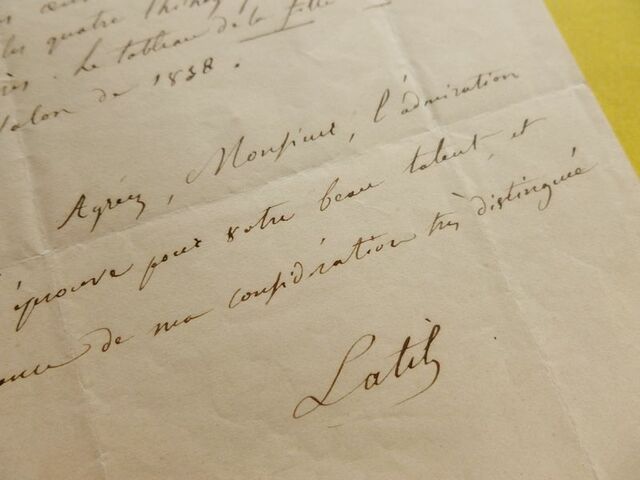 les quatre
. Le tableau de la fille
Salon de 1838.
Agréez, Monsieur, l'admiration
éprouve pour votre beau talent, et
de ma considération très distinguée
Latil